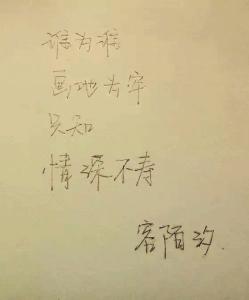 谁为谁
画地为牢
只知
情深不寿
容陌汐.